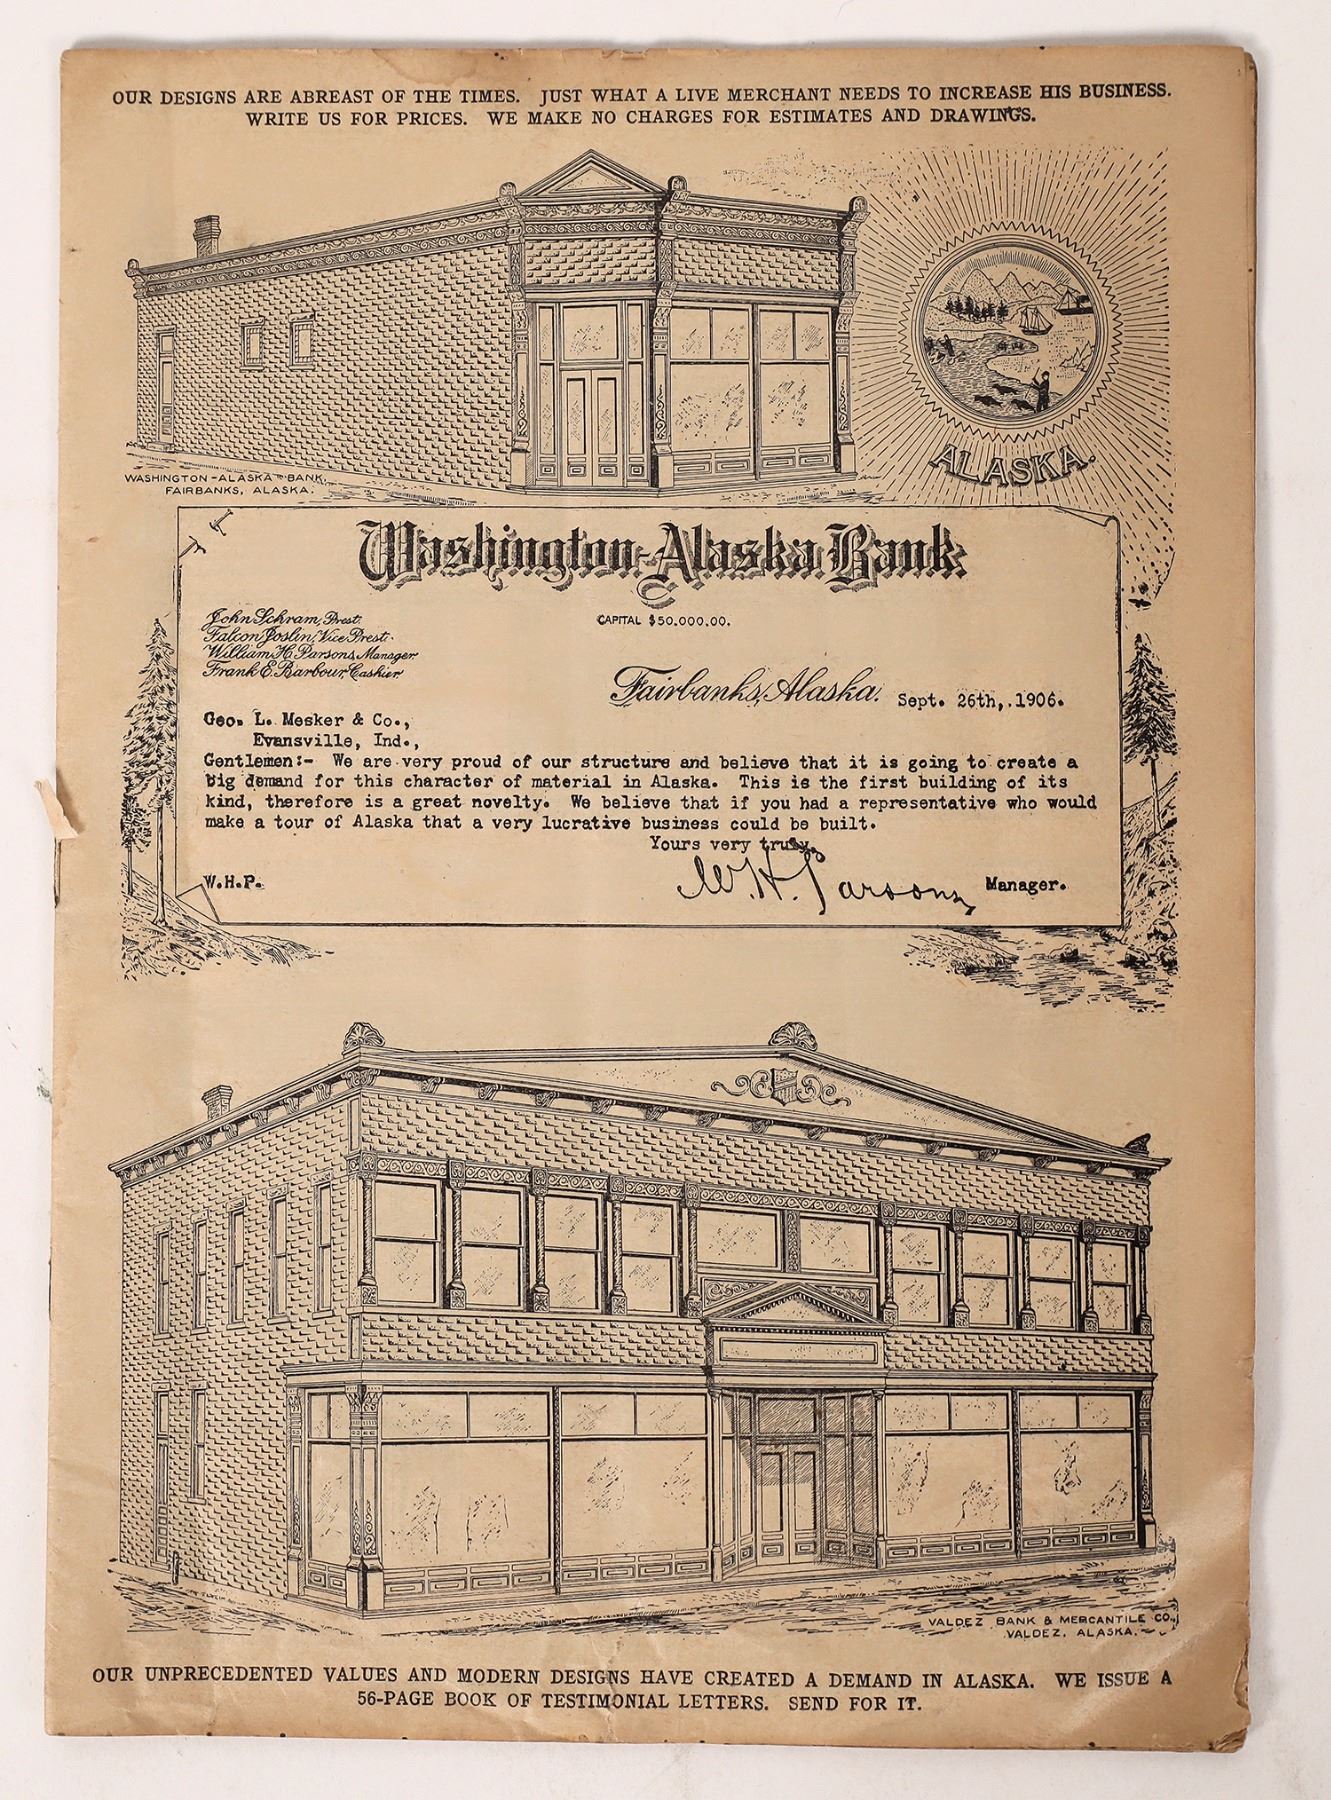 OUR DESIGNS ARE ABREAST OF THE TIMES. JUST WHAT A LIVE MERCHANT NEEDS TO INCREASE HIS BUSINESS.
WRITE US FOR PRICES. WE MAKE NO CHARGES FOR ESTIMATES AND DRAWINGS.
WASHINGTON-ALASKA BANK,
FAIRBANKS, ALASKA.
ALASKA.
Washington-Alaska Bank
John Schram, Prest.
Falcon Joslin, Vice Prest.
William H. Parsons, Manager
Frank E. Barbour, Cashier
CAPITAL $50,000.00.
Fairbanks, Alaska. Sept. 26th,.1906.
Geo. L. Mesker & Co.,
Evansville, Ind.,
Gentlemen:- We are very proud of our structure and believe that it is going to create a
big demand for this character of material in Alaska. This is the first building of its
kind, therefore is a great novelty. We believe that if you had a representative who would
make a tour of Alaska that a very lucrative business could be built.
Yours very truly,
W.H.P. W.H. Parsons Manager.
VALDEZ BANK & MERCANTILE CO.,
VALDEZ, ALASKA.
OUR UNPRECEDENTED VALUES AND MODERN DESIGNS HAVE CREATED A DEMAND IN ALASKA. WE ISSUE A
56-PAGE BOOK OF TESTIMONIAL LETTERS. SEND FOR IT.